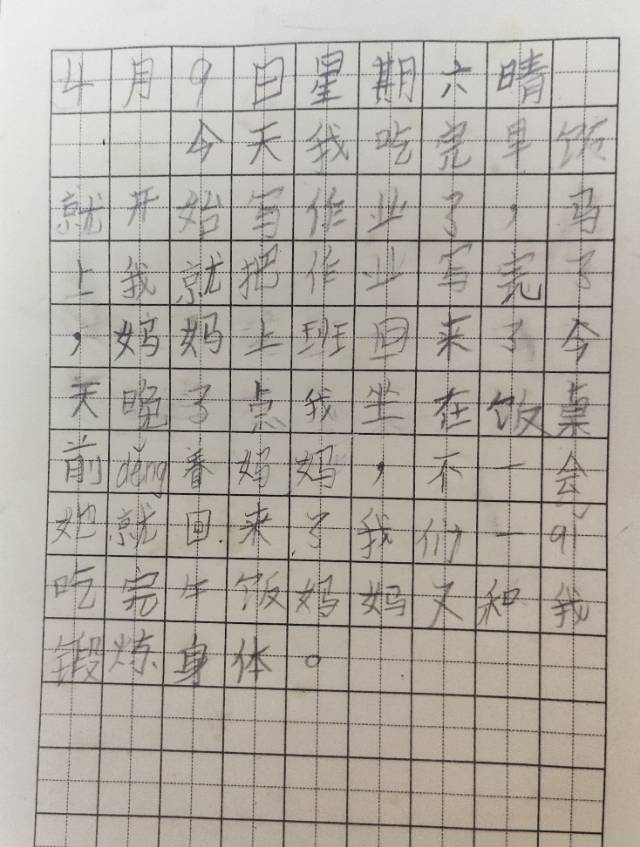 4月9日星期六晴
今天我吃完早饭
就开始写作业了，马
上我就把作业写完了
，妈妈上班回来了今
天晚了点我坐在饭桌
前děng着妈妈，不一会
她就回来了我们一qǐ
吃完午饭妈妈又和我
锻炼身体。